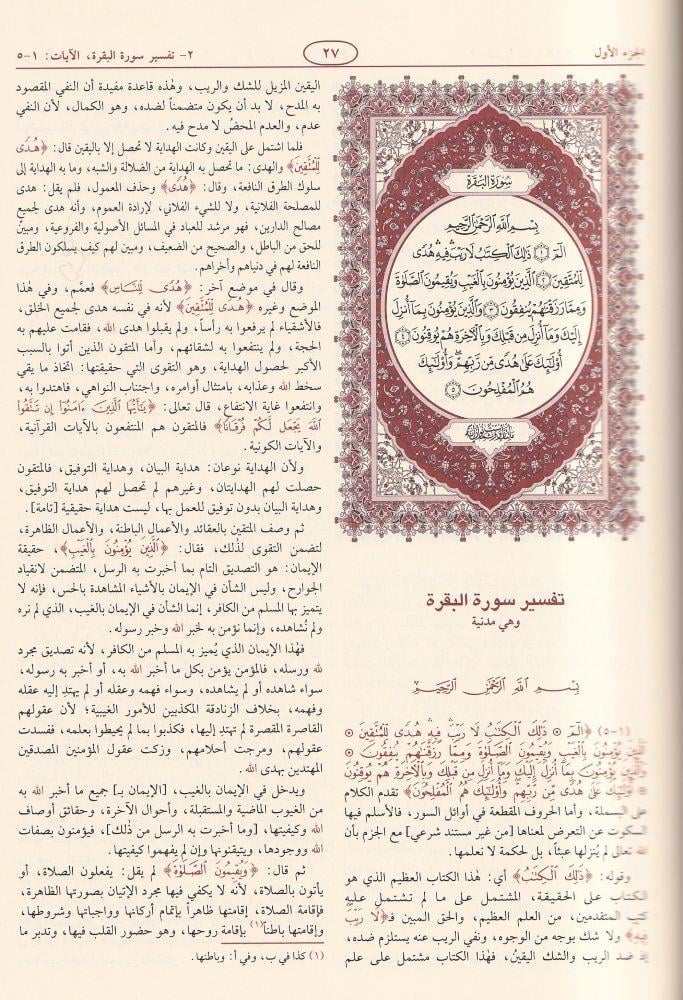 الجزء الأول
٢٧
٢- تفسير سورة البقرة، الآيات: ١-٥
سُورَةُ البَقَرَةِ
بِسْمِ اللَّهِ الرَّحْمَٰنِ الرَّحِيمِ
الٓمٓ ١ ذَٰلِكَ ٱلْكِتَٰبُ لَا رَيْبَ فِيهِ هُدًى
لِّلْمُتَّقِينَ ٢ ٱلَّذِينَ يُؤْمِنُونَ بِٱلْغَيْبِ وَيُقِيمُونَ ٱلصَّلَوٰةَ
وَمِمَّا رَزَقْنَٰهُمْ يُنفِقُونَ ٣ وَٱلَّذِينَ يُؤْمِنُونَ بِمَآ أُنزِلَ
إِلَيْكَ وَمَآ أُنزِلَ مِن قَبْلِكَ وَبِٱلْءَاخِرَةِ هُمْ يُوقِنُونَ ٤
أُو۟لَٰٓئِكَ عَلَىٰ هُدًى مِّن رَّبِّهِمْ وَأُو۟لَٰٓئِكَ
هُمُ ٱلْمُفْلِحُونَ ٥
تفسير سورة البقرة
وهي مدنية
بِسْمِ اللَّهِ الرَّحْمَٰنِ الرَّحِيمِ
(١-٥) ﴿الٓمٓ ۞ ذَٰلِكَ ٱلْكِتَٰبُ لَا رَيْبَ فِيهِ هُدًى لِّلْمُتَّقِينَ ۞
ٱلَّذِينَ يُؤْمِنُونَ بِٱلْغَيْبِ وَيُقِيمُونَ ٱلصَّلَوٰةَ وَمِمَّا رَزَقْنَٰهُمْ يُنفِقُونَ ۞
وَٱلَّذِينَ يُؤْمِنُونَ بِمَآ أُنزِلَ إِلَيْكَ وَمَآ أُنزِلَ مِن قَبْلِكَ وَبِٱلْءَاخِرَةِ هُمْ يُوقِنُونَ ۞
أُو۟لَٰٓئِكَ عَلَىٰ هُدًى مِّن رَّبِّهِمْ وَأُو۟لَٰٓئِكَ هُمُ ٱلْمُفْلِحُونَ﴾ تقدم الكلام
على البسملة، وأما الحروف المقطعة في أوائل السور، فالأسلم فيها
السكوت عن التعرض لمعناها [من غير مستند شرعي] مع الجزم بأن
الله تعالى لم يُنزلها عبثاً، بل لحكمة لا نعلمها.
وقوله: ﴿ذَٰلِكَ ٱلْكِتَٰبُ﴾ أي: هذا الكتاب العظيم الذي هو
الكتاب على الحقيقة، المشتمل على ما لم تشتمل عليه
كتب المتقدمين، من العلم العظيم، والحق المبين فـ﴿لَا رَيْبَ
فِيهِ﴾ ولا شك بوجه من الوجوه، ونفي الريب عنه يستلزم ضده،
إذ ضد الريب والشك اليقينُ، فهٰذا الكتاب مشتمل على علم
اليقين المزيل للشك والريب، وهٰذه قاعدة مفيدة أن النفي المقصود
به المدح، لا بد أن يكون متضمناً لضده، وهو الكمال، لأن النفي
عدم، والعدم المحضُ لا مدح فيه.
فلما اشتمل على اليقين وكانت الهداية لا تحصل إلا باليقين قال: ﴿هُدًى
لِّلْمُتَّقِينَ﴾ والهدى: ما تحصل به الهداية من الضلالة والشبه، وما به الهداية إلى
سلوك الطرق النافعة، وقال: ﴿هُدًى﴾ وحذف المعمول، فلم يقل: هدى
للمصلحة الفلانية، ولا للشيء الفلاني، لإرادة العموم، وأنه هدى لجميع
مصالح الدارين، فهو مرشد للعباد في المسائل الأصولية والفروعية، ومبينٌ
للحق من الباطل، والصحيح من الضعيف، ومبين لهم كيف يسلكون الطرق
النافعة لهم في دنياهم وأخراهم.
وقال في موضع آخر: ﴿هُدًى لِّلنَّاسِ﴾ فعمَّم، وفي هذا
الموضع وغيره ﴿هُدًى لِّلْمُتَّقِينَ﴾ لأنه في نفسه هدى لجميع الخلق،
فالأشقياء لم يرفعوا به رأساً، ولم يقبلوا هدى الله، فقامت عليهم به
الحجة، ولم ينتفعوا به لشقائهم، وأما المتقون الذين أتوا بالسبب
الأكبر لحصول الهداية، وهو التقوى التي حقيقتها: اتخاذ ما يقي
سخط الله وعذابه، بامتثال أوامره، واجتناب النواهي، فاهتدوا به،
وانتفعوا غاية الانتفاع، قال تعالى: ﴿يَٰٓأَيُّهَا ٱلَّذِينَ ءَامَنُوٓا۟ إِن تَتَّقُوا۟
ٱللَّهَ يَجْعَل لَّكُمْ فُرْقَانًا﴾ فالمتقون هم المنتفعون بالآيات القرآنية،
والآيات الكونية.
ولأن الهداية نوعان: هداية البيان، وهداية التوفيق، فالمتقون
حصلت لهم الهدايتان، وغيرهم لم تحصل لهم هداية التوفيق،
وهداية البيان بدون توفيق للعمل بها، ليست هداية حقيقية [تامة].
ثم وصف المتقين بالعقائد والأعمال الباطنة، والأعمال الظاهرة،
لتضمن التقوى لذٰلك، فقال: ﴿ٱلَّذِينَ يُؤْمِنُونَ بِٱلْغَيْبِ﴾، حقيقة
الإيمان: هو التصديق التام بما أخبرت به الرسل، المتضمن لانقياد
الجوارح، وليس الشأن في الإيمان بالأشياء المشاهدة بالحس، فإنه لا
يتميز بها المسلم من الكافر، إنما الشأن في الإيمان بالغيب، الذي لم نره
ولم نُشاهده، وإنما نؤمن به لخبر الله وخبر رسوله.
فهٰذا الإيمان الذي يُميز به المسلم من الكافر، لأنه تصديق مجرد
لله ورسله، فالمؤمن يؤمن بكل ما أخبر الله به، أو أخبر به رسوله،
سواء شاهده أو لم يشاهده، وسواء فهمه وعقله أو لم يهتدِ إليه عقله
وفهمه، بخلاف الزنادقة المكذبين للأمور الغيبية؛ لأن عقولهم
القاصرة المقصرة لم تهتدِ إليها، فكذبوا بما لم يحيطوا بعلمه، ففسدت
عقولهم، ومرجت أحلامهم، وزكت عقول المؤمنين المصدقين
المهتدين بهدى الله.
ويدخل في الإيمان بالغيب، [الإيمان بـ] جميع ما أخبر الله به
من الغيوب الماضية والمستقبلة، وأحوال الآخرة، وحقائق أوصاف
الله وكيفيتها، [وما أخبرت به الرسل من ذٰلك]، فيؤمنون بصفات
الله ووجودها، ويتيقنونها وإن لم يفهموا كيفيتها.
ثم قال: ﴿وَيُقِيمُونَ ٱلصَّلَوٰةَ﴾ لم يقل: يفعلون الصلاة، أو
يأتون بالصلاة، لأنه لا يكفي فيها مجرد الإتيان بصورتها الظاهرة،
فإقامة الصلاة، إقامتها ظاهراً بإتمام أركانها وواجباتها وشروطها،
وإقامتها باطناً(١) بإقامة روحها، وهو حضور القلب فيها، وتدبر ما
(١) كذا في ب، وفي أ: وباطنها.